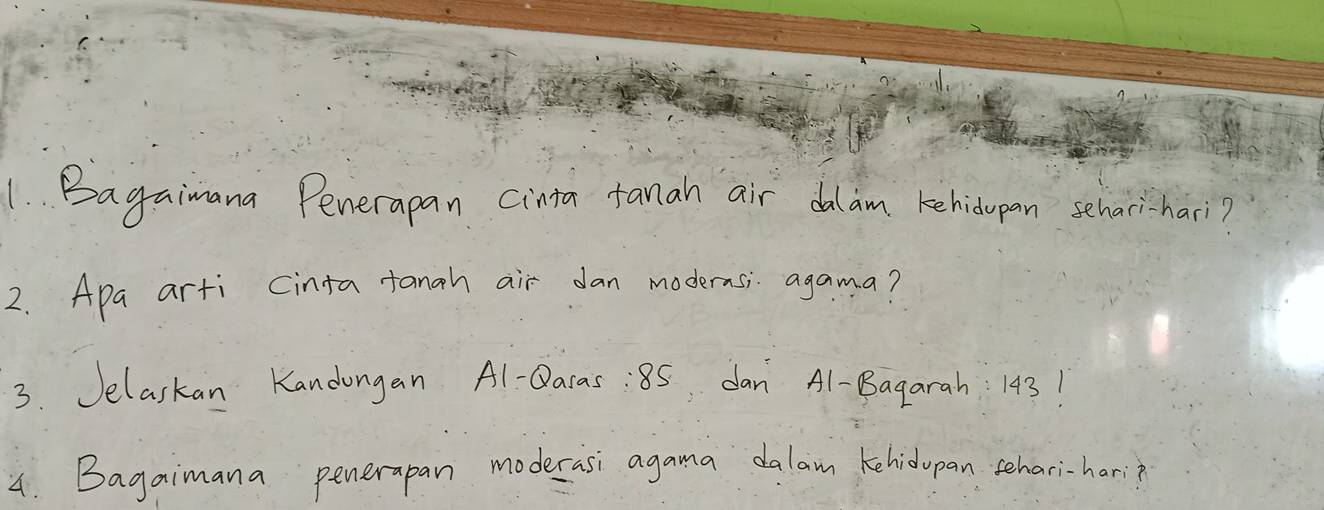 1. Bagaimana Penerapan cinta tanah air dalam kehidupan sehari-hari?
2. Apa arti cinta tanah air dan moderasi agama?
3. Jelaskan Kandungan Al-Qasas : 85, dan Al-Baqarah : 143 !
4. Bagaimana penerapan moderasi agama dalam kehidupan sehari-hari?